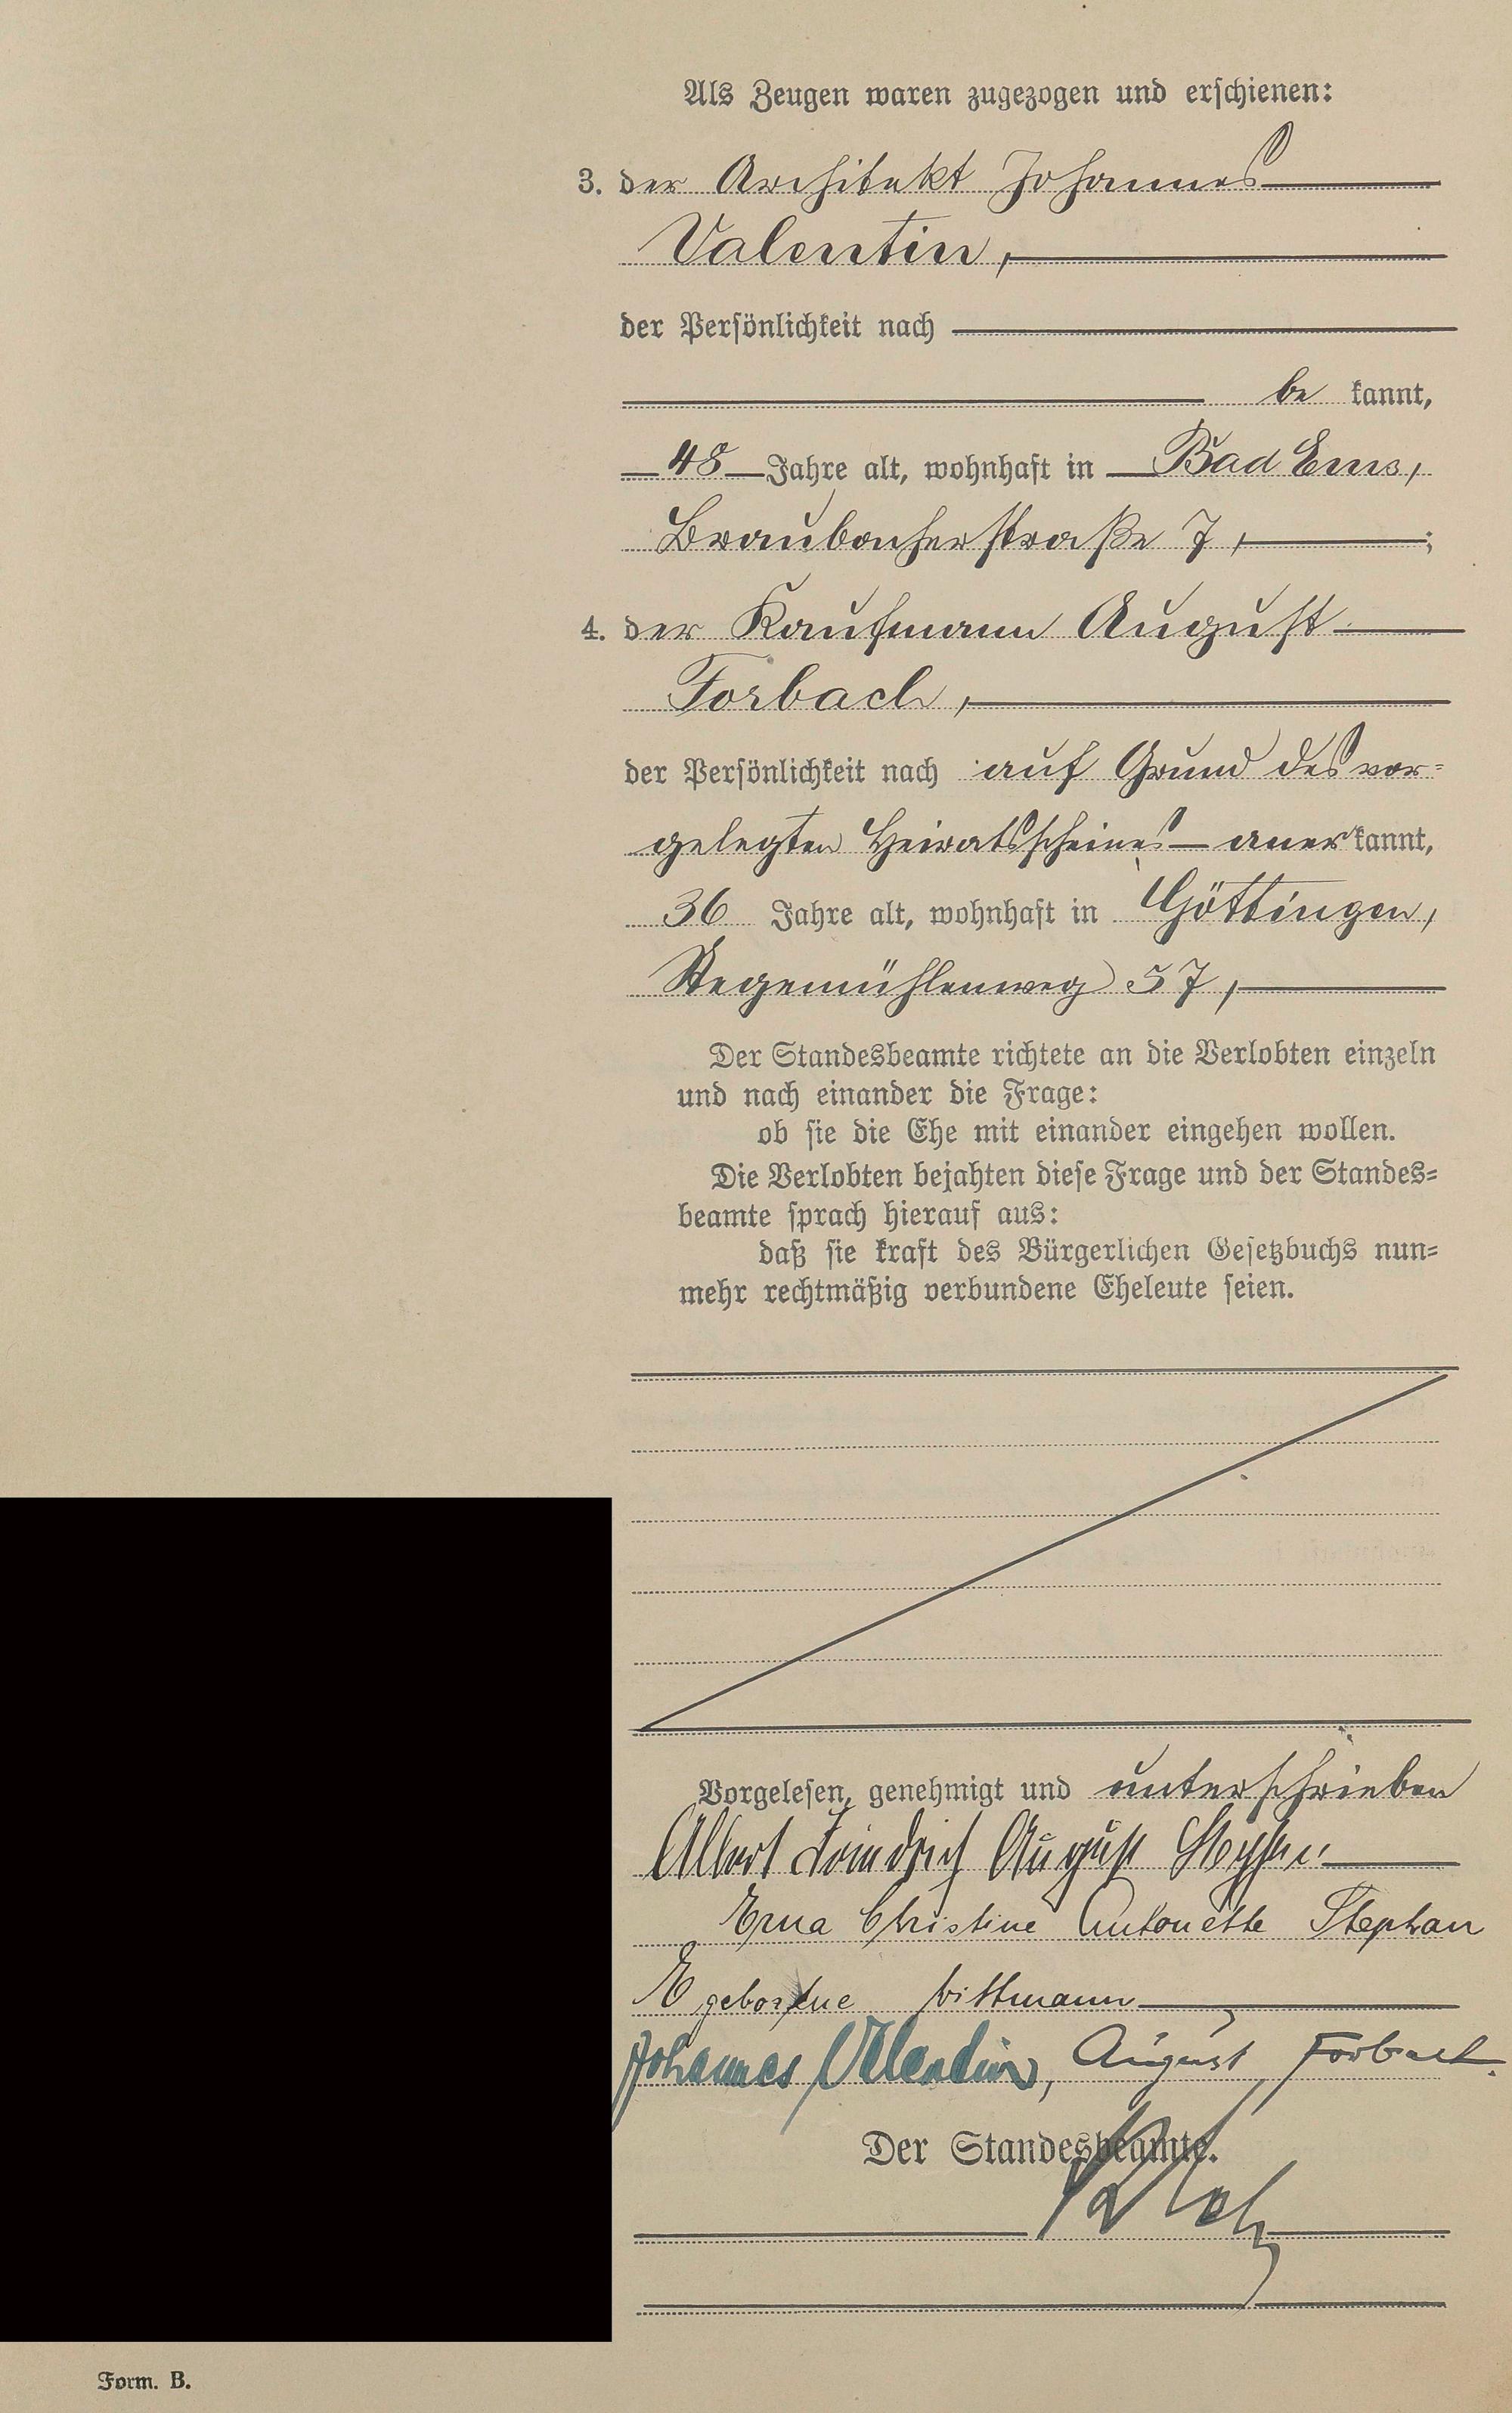 Als Zeugen waren zugezogen und erschienen:
3. der Architekt Johannes
Valentin,
der Persönlichkeit nach
be kannt,
48 Jahre alt, wohnhaft in Bad Ems,
Braubacherstraße 7, ;
4. der Kaufmann August
Forbach,
der Persönlichkeit nach auf Grund des vor-
gelegten Heiratsscheines anerkannt,
36 Jahre alt, wohnhaft in Göttingen,
Stegemühlenweg 57,
Der Standesbeamte richtete an die Verlobten einzeln
und nach einander die Frage:
ob sie die Ehe mit einander eingehen wollen.
Die Verlobten bejahten diese Frage und der Standes-
beamte sprach hierauf aus:
daß sie kraft des Bürgerlichen Gesetzbuchs nun-
mehr rechtmäßig verbundene Eheleute seien.
Vorgelesen, genehmigt und unterschrieben
Albert Friedrich August Stephan
Erna Christine Antonette Stephan
geborene Wittmann
Johannes Valentin, August Forbach.
Der Standesbeamte.
Form. B.